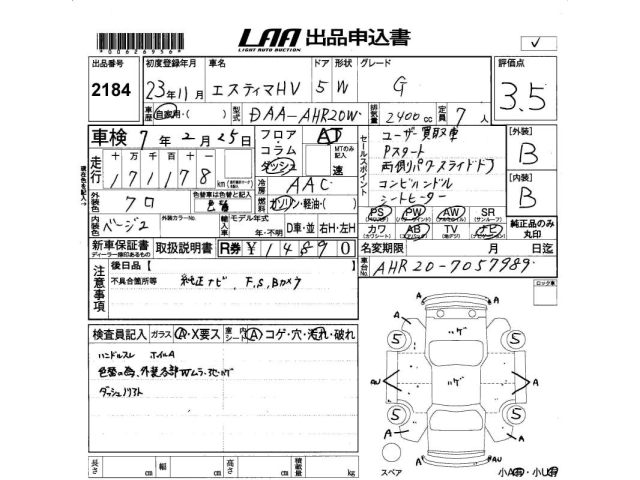 *00626956*
LAA 出品申込書
LIGHT AUTO AUCTION
✓
出品番号 初度登録年月 車名 ドア 形状 グレード 評価点
2184 23年11月 エスティマHV 5 W G 3.5
車歴 自家用・( ) 型式 DAA-AHR20W 排気量 2400cc 定員 7人
車検 7年2月25日 フロア・コラム ダッシュ AT MTのみ記入 速
セールスポイント ユーザー買取車
Pスタート
両側パワースライドドア
コンビハンドル
シートヒーター
[外装] B
[内装] B
走行 十万 万 千 百 十 一
171178 km
現在色を記入→
冷房 AAC
外装色 クロ 色替車は色替と記入 色替 燃料 ガソリン・軽油・( )
PS PW AW SR
(サンルーフ)
カワ AB TV ナビ
(カワシート) (エアバッグ) (地デジ) (ナビゲーション)
純正品のみ丸印
内装色 ベージ2 外装カラーNo. 輸入車 モデル年式 年・不明 D車・並 右H・左H
新車保証書 取扱説明書 R券 ¥14890
ディーラー捺印あるもの
名変期限 月 日迄
車台No. AHR20-7057989
注意事項 後日品【
不具合箇所等 純正ナビ、F,S,Bカメラ
ロック車
検査員記入 ガラス A・X要ス 室内 シート A コゲ・穴・汚れ・破れ
ハンドルスレ ホイルA
色替の為、外装各部Wムラ・
ダッシュノリアト
A A
ハゲ
5 5
A A
AU ハゲ A
5 5
A A
A AU
スペア
小A有・小U有
長さ cm 幅 cm 高さ cm 積載量 kg